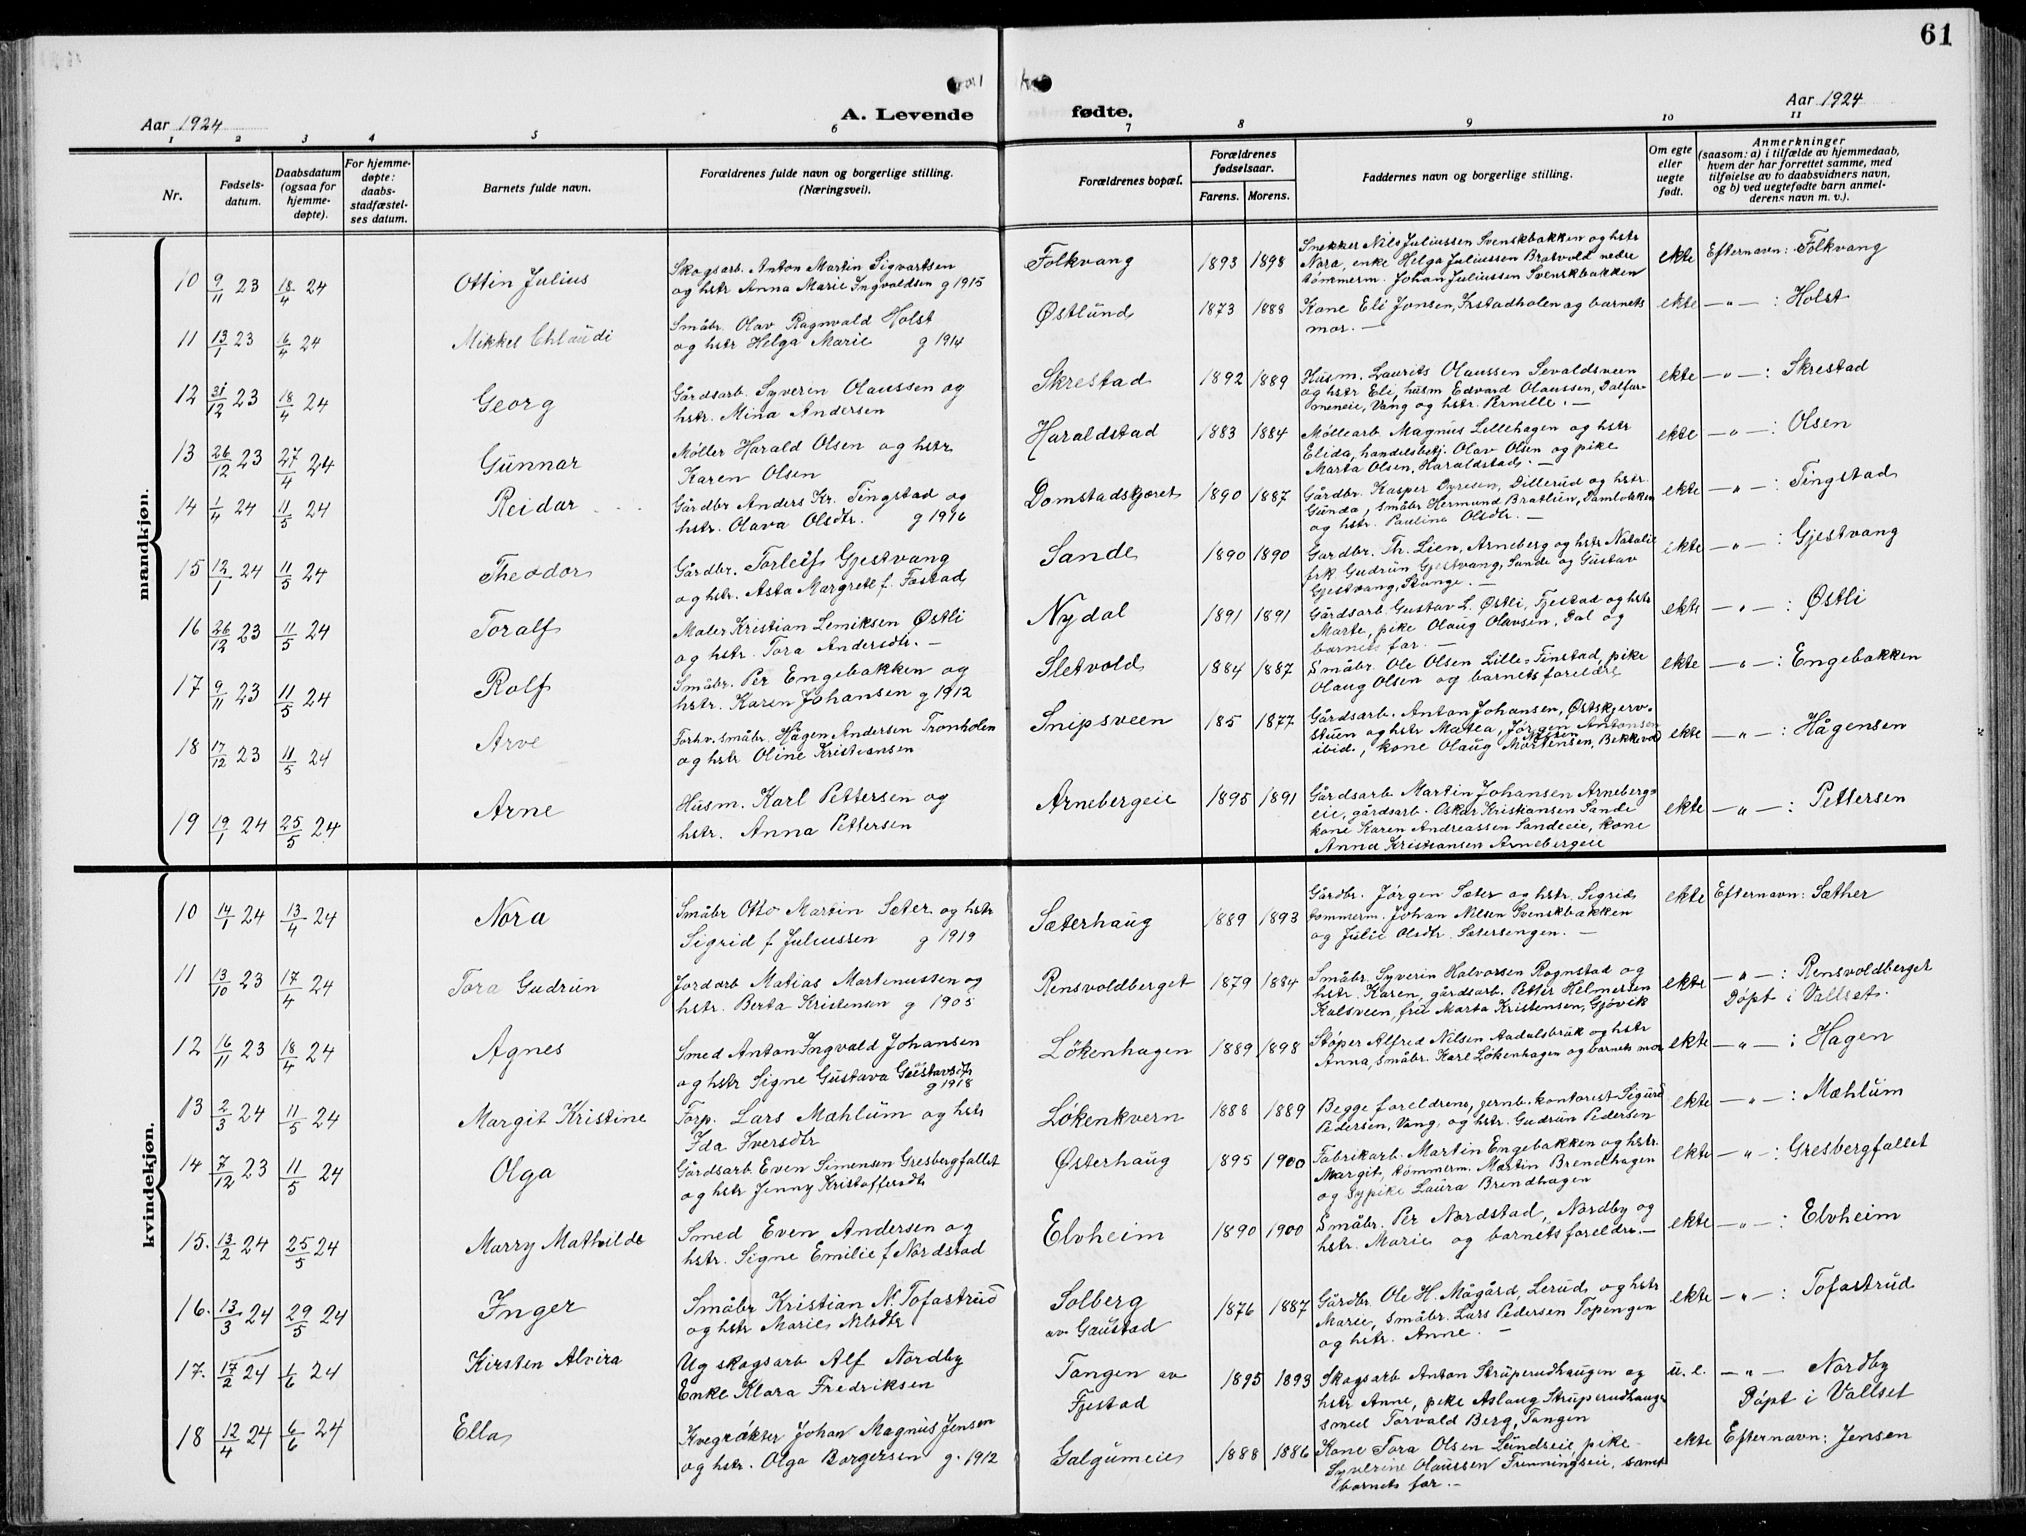 61
Aar 1924
A. Levende fødte.
Aar 1924
1 2 3 4 5 6 7 8 9 10 11
Nr.
Fødsels-
datum.
Daabsdatum
(ogsaa for
hjemme-
døpte).
For hjemme-
døpte:
daabs-
stadfæstel-
ses datum.
Barnets fulde navn.
Forældrenes fulde navn og borgerlige stilling.
(Næringsvei).
Forældrenes bopæl.
Forældrenes
fødselsaar.
Farens. Morens.
Faddernes navn og borgerlige stilling.
Om egte
eller
uegte
født.
Anmerkninger
(saasom: a) i tilfælde av hjemmedaab,
hvem der har forrettet samme, med
tilføielse av to daabsvidners navn,
og b) ved uegtefødte barn anmel-
derens navn m. v.).
mandkjøn.
10 9/11 23 18/4 24 Ottin Julius
Skogsarb. Anton Martin Sigvartsen
og hstr Anna Marie Ingvaldsen g 1915
Folkvang 1893 1898
Snekker Nils Juliussen Svenskbakken og hstr
Nora, enke Helga Juliussen Bratvold nedre
tømmerm. Johan Juliussen Svenskbakken
ekte Efternavn: Folkvang
11 13/1 23 16/4 24 Mikkel Chlaudi
Småbr. Olav Ragnvald Holst
og hstr Helga Marie g 1914
Østlund 1873 1888
Kone Eli Jonsen, Irstadholen og barnets
mor. —
ekte —„— : Holst
12 31/12 23 18/4 24 Georg
Gårdsarb. Syverin Olaussen og
hstr. Mina Andersen
Skrestad 1892 1889
Husm. Laurits Olaussen Sevaldsveen
og hstr Eli, husm Edvard Olaussen, Dalfar-
meneie, Vang og hstr. Pernille. —
ekte —„— : Skrestad
13 26/12 23 27/4 24 Gunnar
Møller Harald Olsen og hstr
Karen Olsen
Haraldstad 1883 1884
Møllearb. Magnus Lillehagen og hstr
Elida, handelsbetj. Olav Olsen og pike
Marta Olsen, Haraldstad. —
ekte —„— : Olsen
14 1/4 24 11/5 24 Reidar
Gårdbr Anders Kr. Tingstad og
hstr. Olava Olsdtr. g 1916
Domstadskjæret 1890 1887
Gårdbr. Kasper Dyresen, Dillerud og hstr.
Gunda, småbr Hermund Bratlun, Damlokken
og hstr. Pauline Olsdtr. —
ekte —„— : Tingstad
15 12/1 24 11/5 24 Theodor
Gårdbr. Torleif Gjestvang
og hstr. Asta Margrete f. Fostad
Sande 1890 1890
Gardbr. Th. Lien, Arneberg og hstr Natalie
frk. Gudrun Gjestvang, Sande og Gustav
Gjestvang, Stange. —
ekte —„— : Gjestvang
16 26/12 23 11/5 24 Toralf
Maler Kristian Lemiksen Østli
og hstr. Tora Andersdtr. —
Nydal 1891 1891
Gårdsarb Gustav L. Østli, Fjestad og hstr
Marte, pike Olaug Olavsen, Dal og
barnets far. —
ekte —„— : Østli
17 9/11 23 11/5 24 Rolf
Småbr. Per Engebakken og
hstr. Karen Johansen g 1912
Sletvold 1884 1887
Småbr. Ole Olsen Lille-Finstad, pike
Olaug Olsen og barnets foreldre
ekte —„— : Engebakken
18 17/12 23 11/5 24 Arve
Forhv. småbr. Hågen Andersen Tronholen
og hstr Oline Kristiansen
Snipsveen 185 1877
Gårdsarb. Anton Johansen, Østskjerv-
stuen og hstr Matea, Jørgen Antonsen
ibid., kone Olaug Mortensen, Bekkevold
ekte —„— : Hågensen
19 19/1 24 25/5 24 Arne
Husm. Karl Pettersen og
hstr. Anna Pettersen
Arnebergeie 1895 1891
Gårdsarb Martin Johansen Arnebergs-
eie, gårdsarb. Oskar Kristiansen Sande
kone Karen Andreassen Sandeeie, kone
Anna Kristiansen Arnebergeie
ekte —„— : Pettersen
kvindekjøn.
10 14/1 24 13/4 24 Nora
Småbr Otto Martin Sæter og hstr
Sigrid f Juliussen g 1919
Sæterhaug 1889 1893
Gårdbr. Jørgen Sæter og hstr. Sigrid
tømmerm. Johan Nilsen Svenskbakken
og Julie Olsdtr. Sætersengen. —
ekte Efternavn: Sæther
11 13/10 23 17/4 24 Tora Gudrun
Jordarb Matias Martenussen og
hstr. Berta Kristensen g 1905
Rensvoldberget 1879 1884
Småbr. Syverin Halvorsen Rognstad og
hstr. Karen, gårdsarb. Petter Helmersen
Kalsveen, fru Marta Kristensen, Gjøvik
ekte —„— : Rensvoldberget
Døpt i Vallset.
12 16/11 23 18/4 24 Agnes
Smed Anton Ingvald Johansen
og hstr Signe Gustava Gustavsdtr
g 1918
Løkenhagen 1889 1898
Støper Alfred Nilsen Aadalsbruk og hstr
Anna, småbr. Karl Løkenhagen og barnets mor
ekte —„— : Hagen
13 2/3 24 11/5 24 Margit Kristine
Torp. Lars Mæhlum og hstr
Ida Iversdtr
Løkenkvern 1888 1889
Begge foreldrene, jernb. kontorist Sigurd
Pedersen, Vang, og hstr. Gudrun Pedersen
ekte —„— : Mæhlum
14 7/12 23 11/5 24 Olga
Gårdsarb Even Simensen Gresbergfallet
og hstr Jenny Kristoffersdtr
Østerhaug 1895 1900
Fabrikarb. Martin Engebakken og hstr.
Margit, tømmerm. Martin Brendhagen
og sypike Laura Brendhagen
ekte —„— : Gresbergfallet
15. 13/2 24 25/5 24 Marry Mathilde
Smed Even Andersen og
hstr. Signe Emilie f Nordstad
Elvheim 1890 1900
Småbr. Per Nordstad, Nordby og
hstr. Marie og barnets foreldre. —
ekte —„— : Elvheim
16. 13/3 24 29/5 24 Inger
Småbr Kristian N. Tofastrud
og hstr Marie Nilsdtr
Solberg
av Gaustad
1876 1887
Gårdbr. Ole H. Mågård, Lerud og hstr
Marie, småbr. Lars Pedersen Topengen
og hstr. Anne. —
ekte —„— : Tofastrud
17. 17/2 24 1/6 24 Kirsten Alvira
Ug skogsarb Alf Nordby
Enke Klara Fredriksen
Tangen av
Fjestad
1895 1893
Skogsarb Anton Struperudhaugen og
hstr Anne, pike Aslaug Struperudhaugen
smed Torvald Berg, Tangen
u. e. —„— Nordby
Døpt i Vallset
18 12/4 24 6/6 24 Ella
Kvegrøkter Johan Magnus Jensen
og hstr. Olga Borgersen g. 1912
Galgumeie 1888 1886
Kone Tora Olsen Lundseie, pike
Syverine Olaussen Frenningseie, samt
barnets far. —
ekte Efternavn: Jensen